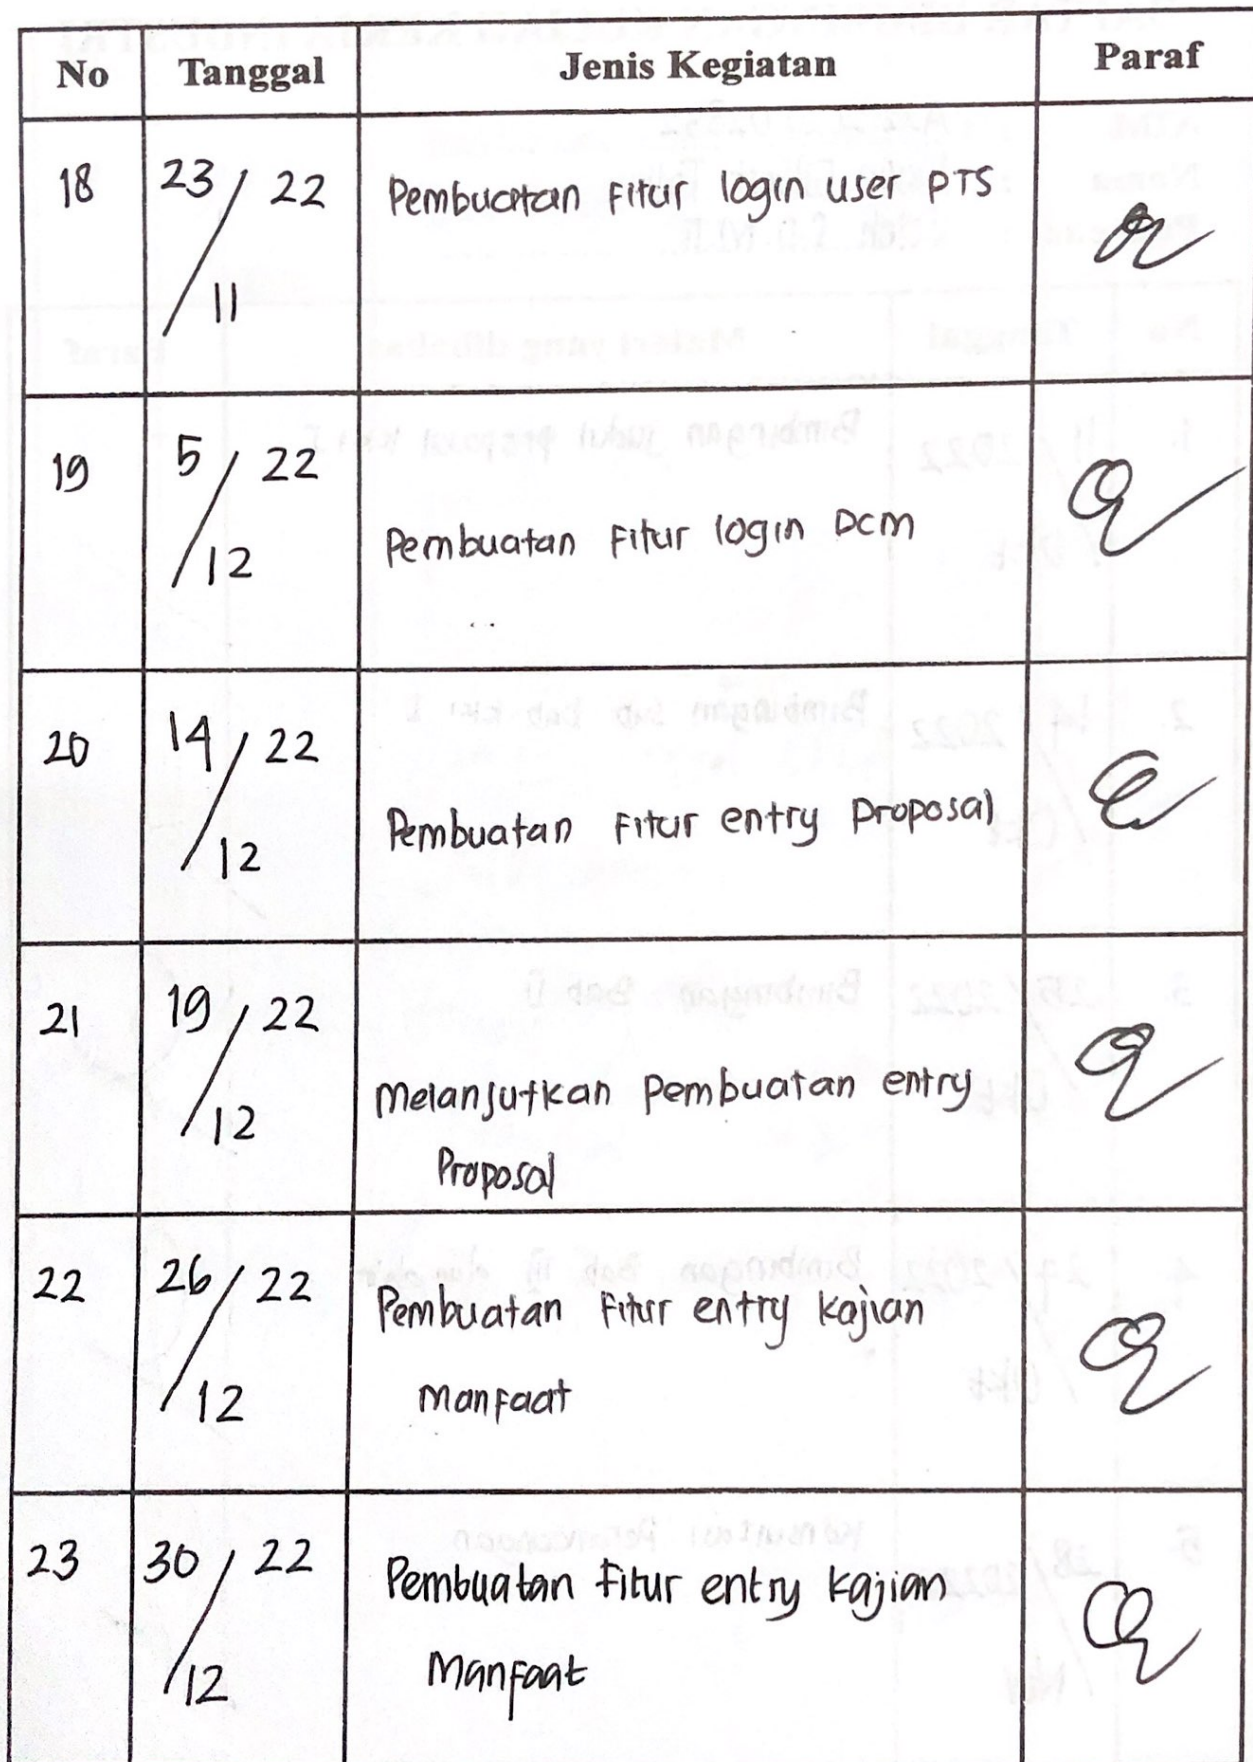 No Tanggal Jenis Kegiatan Paraf
18 23/11 22 Pembuatan Fitur login user PTS
19 5/12 22 Pembuatan Fitur login DCM
20 14/12 22 Pembuatan Fitur entry Proposal
21 19/12 22 Melanjutkan Pembuatan entry
Proposal
22 26/12 22 Pembuatan Fitur entry Kajian
Manfaat
23 30/12 22 Pembuatan fitur entry Kajian
Manfaat